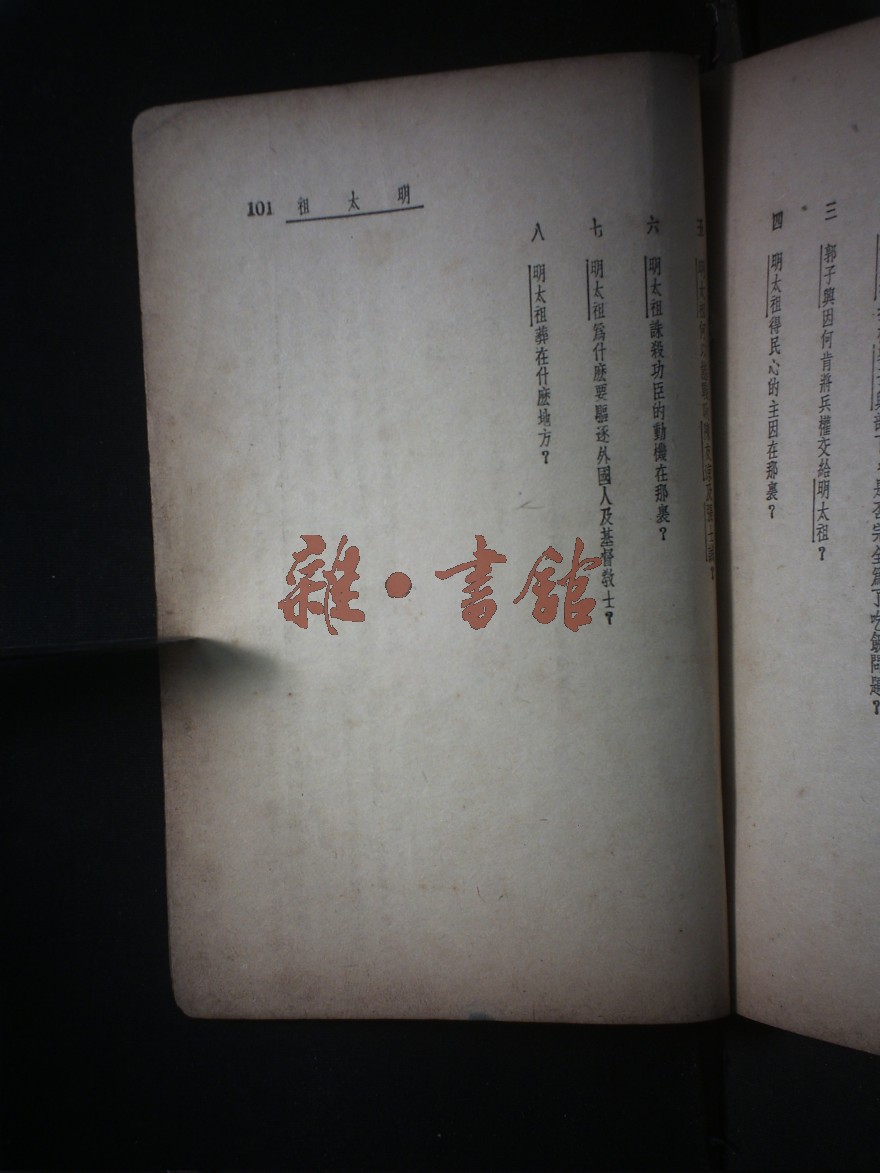 是否完全爲了吃飯問題?
三 郭子興因何肯將兵權交給明太祖?
四 明太祖得民心的主因在那裏?
五 明太祖
六 明太祖誅殺功臣的動機在那裏?
七 明太祖爲什麼要驅逐外國人及基督教士?
八 明太祖葬在什麼地方?
明太祖
101
雜·書館